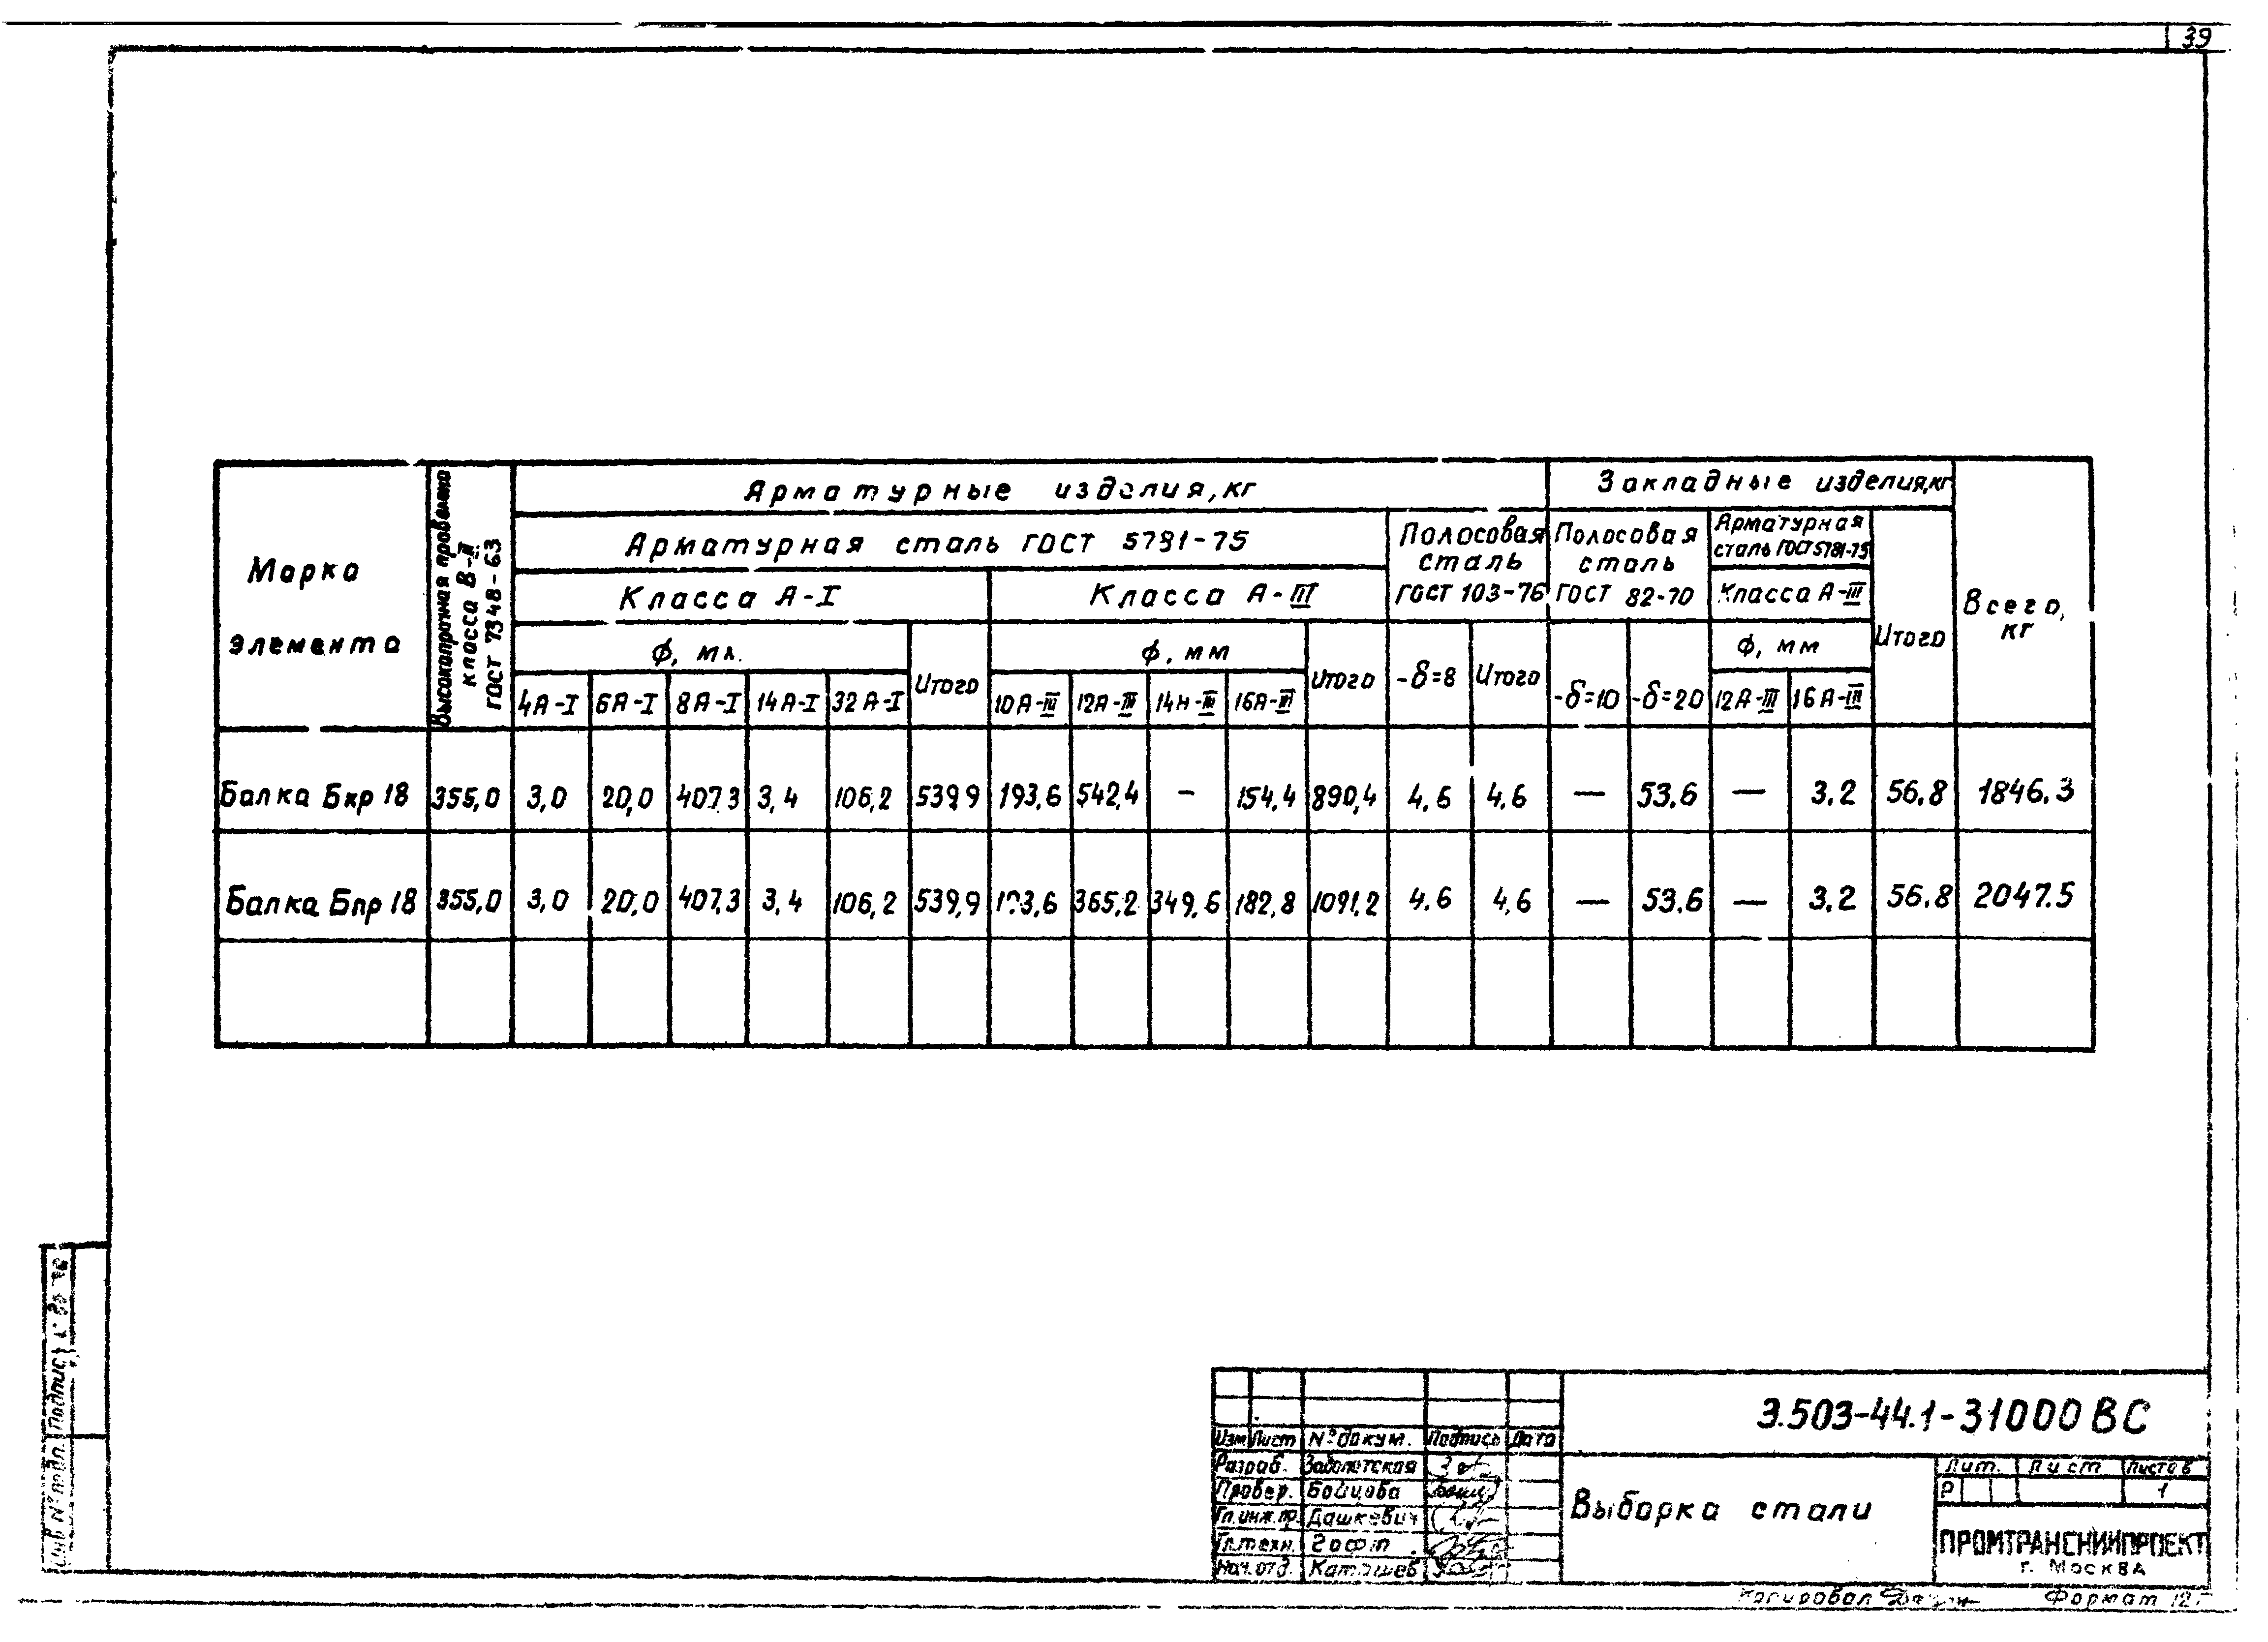 39
Марка элемента
Высокопрочная проволока класса В-II ГОСТ 7348-63
Арматурные изделия, кг
Закладные изделия, кг
Всего, кг
Арматурная сталь ГОСТ 5781-75
Полосовая сталь ГОСТ 103-76
Полосовая сталь ГОСТ 82-70
Арматурная сталь ГОСТ 5781-75
Итого
Класса А-I
Класса А-III
Класса А-III
ф, мм
Итого
ф, мм
Итого
-δ=8
Итого
-δ=10
-δ=20
ф, мм
4А-I 6А-I 8А-I 14А-I 32А-I
10А-III 12А-III 14А-III 16А-III
12А-III 16А-III
Балка Бкр 18 355,0 3,0 20,0 407,3 3,4 106,2 539,9 193,6 542,4 - 154,4 890,4 4,6 4,6 — 53.6 — 3.2 56.8 1846.3
Балка Бпр 18 355,0 3,0 20,0 407,3 3,4 106,2 539,9 193,6 365,2 349,6 182,8 1091,2 4.6 4,6 — 53.6 — 3.2 56.8 2047.5
3.503-44.1-31000 ВС
Изм Лист № докум. Подпись Дата
Разраб. Заболотская
Провер. Бойцова
Гл.инж.пр. Дашкевич
Гл.техн. Гофт
Нач.отд.
Выборка стали
Лит. Лист Листов
Р 1
ПРОМТРАНСНИИПРОЕКТ
г. Москва
Копировал
Формат 12Г
Инв № подл.